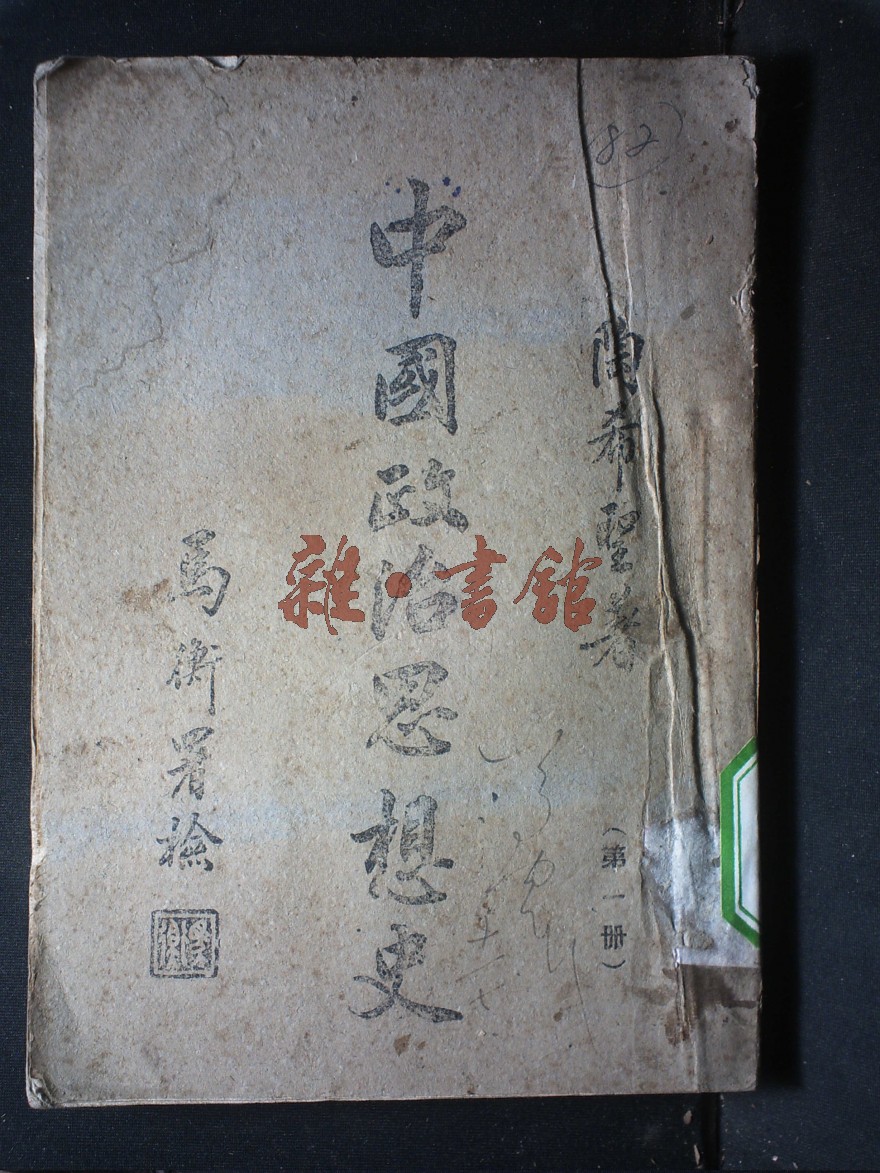 (82)
陶希聖著
(第一册)
中國政治思想史
馬衡署檢
雜·書館